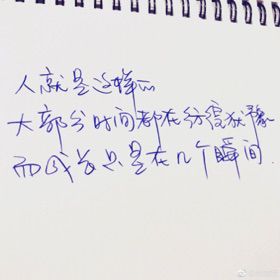 人就是这样的
大部分时间都在彷徨犹豫
而成长只是在几个瞬间